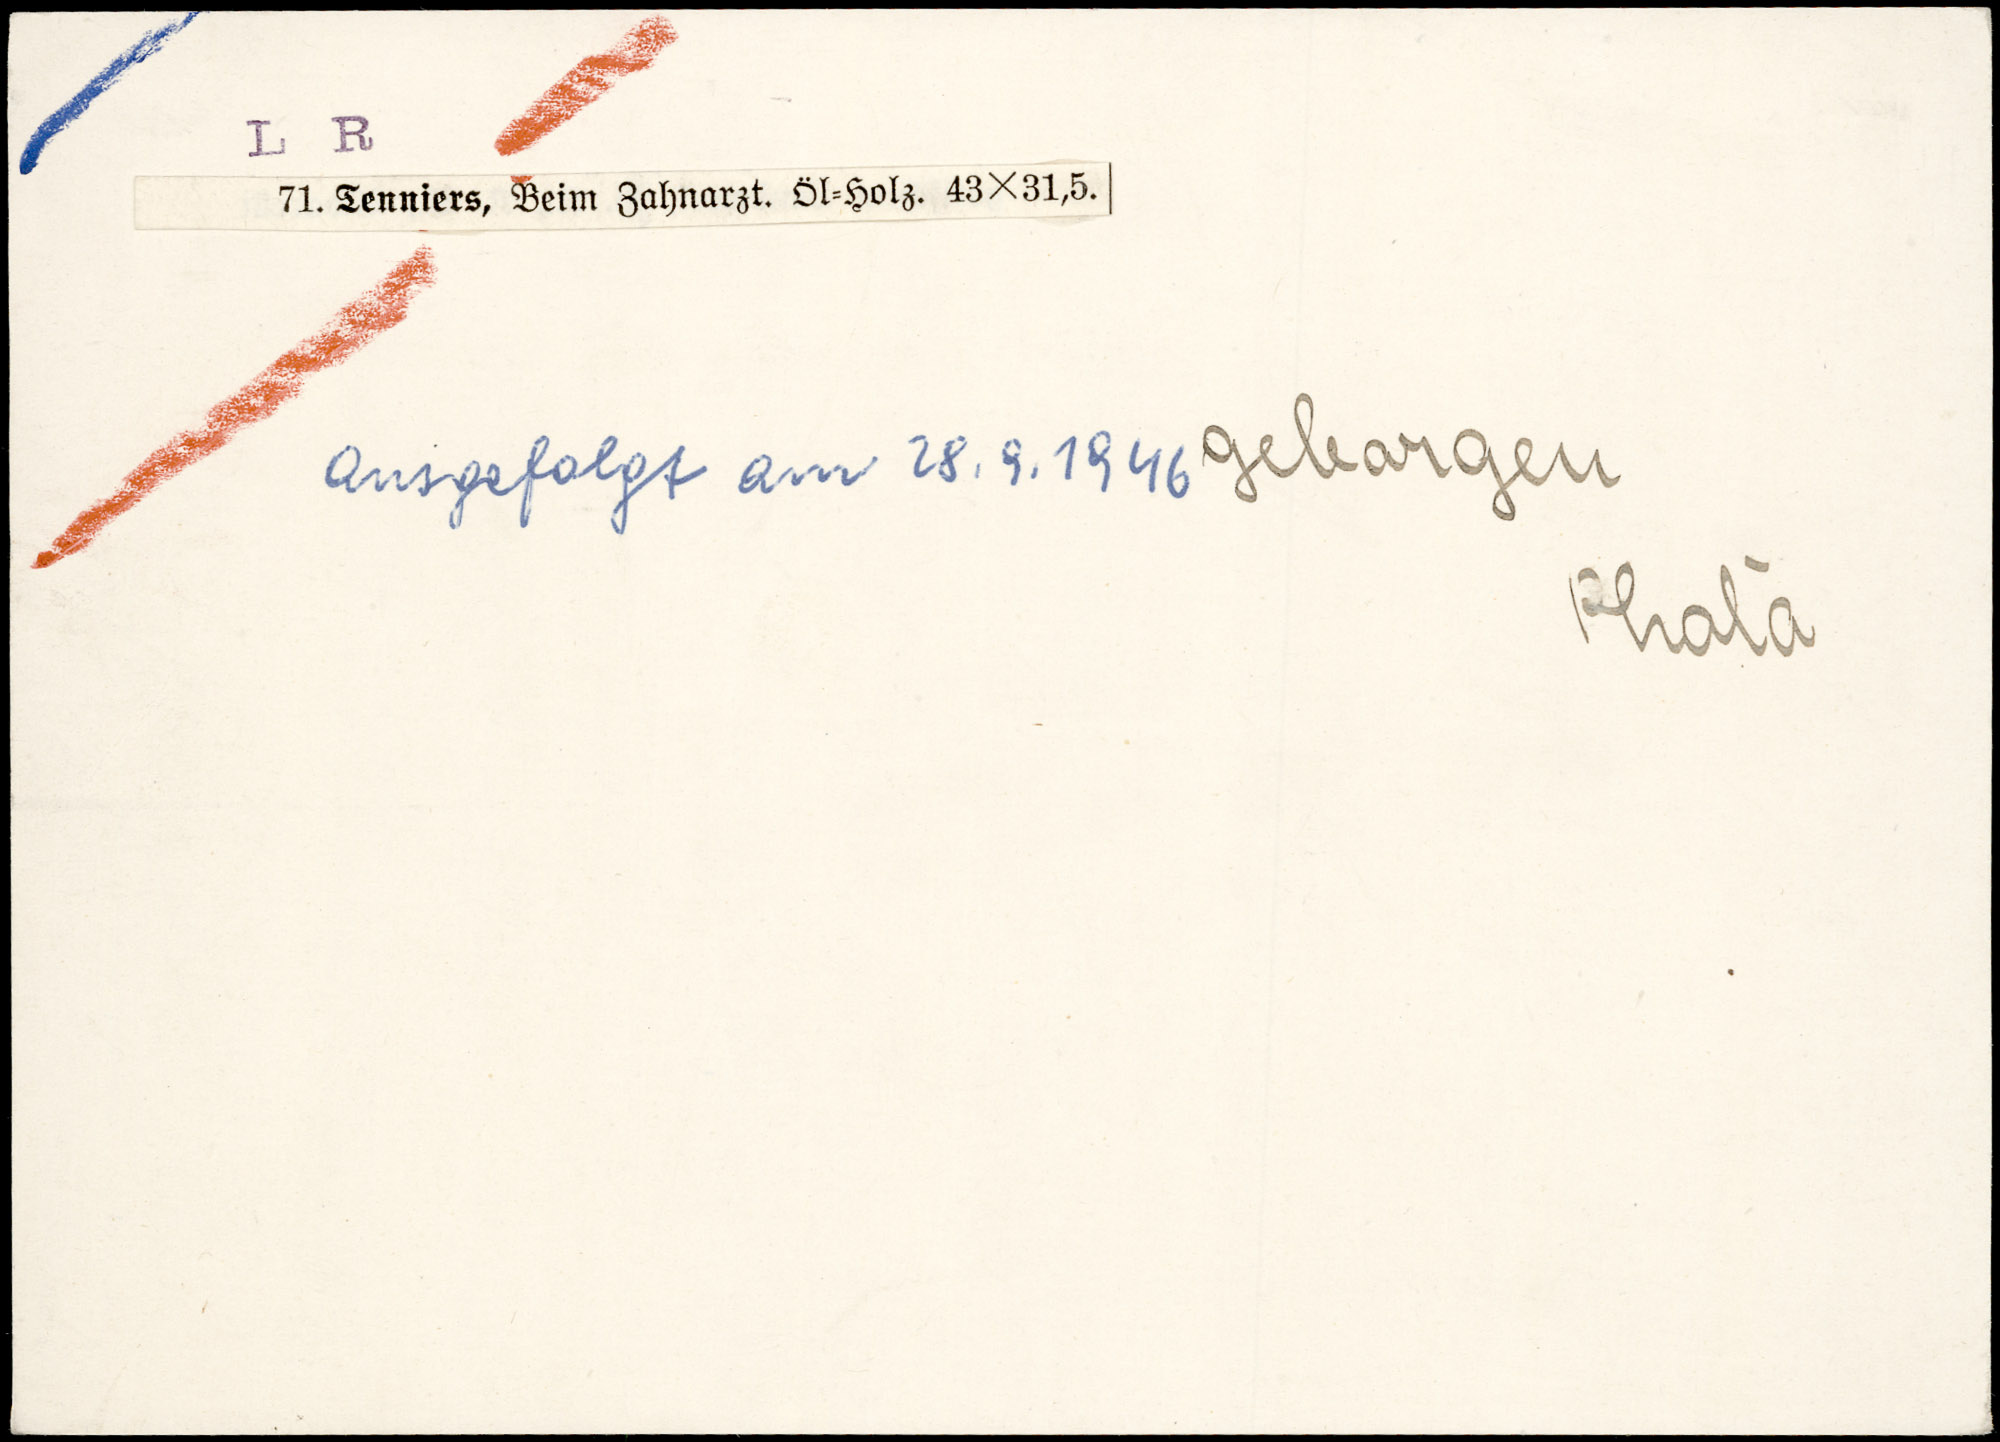 L R
71. Tenniers, Beim Zahnarzt. Öl-Holz. 43×31,5.
ausgefolgt am 28.9.1946 geborgen